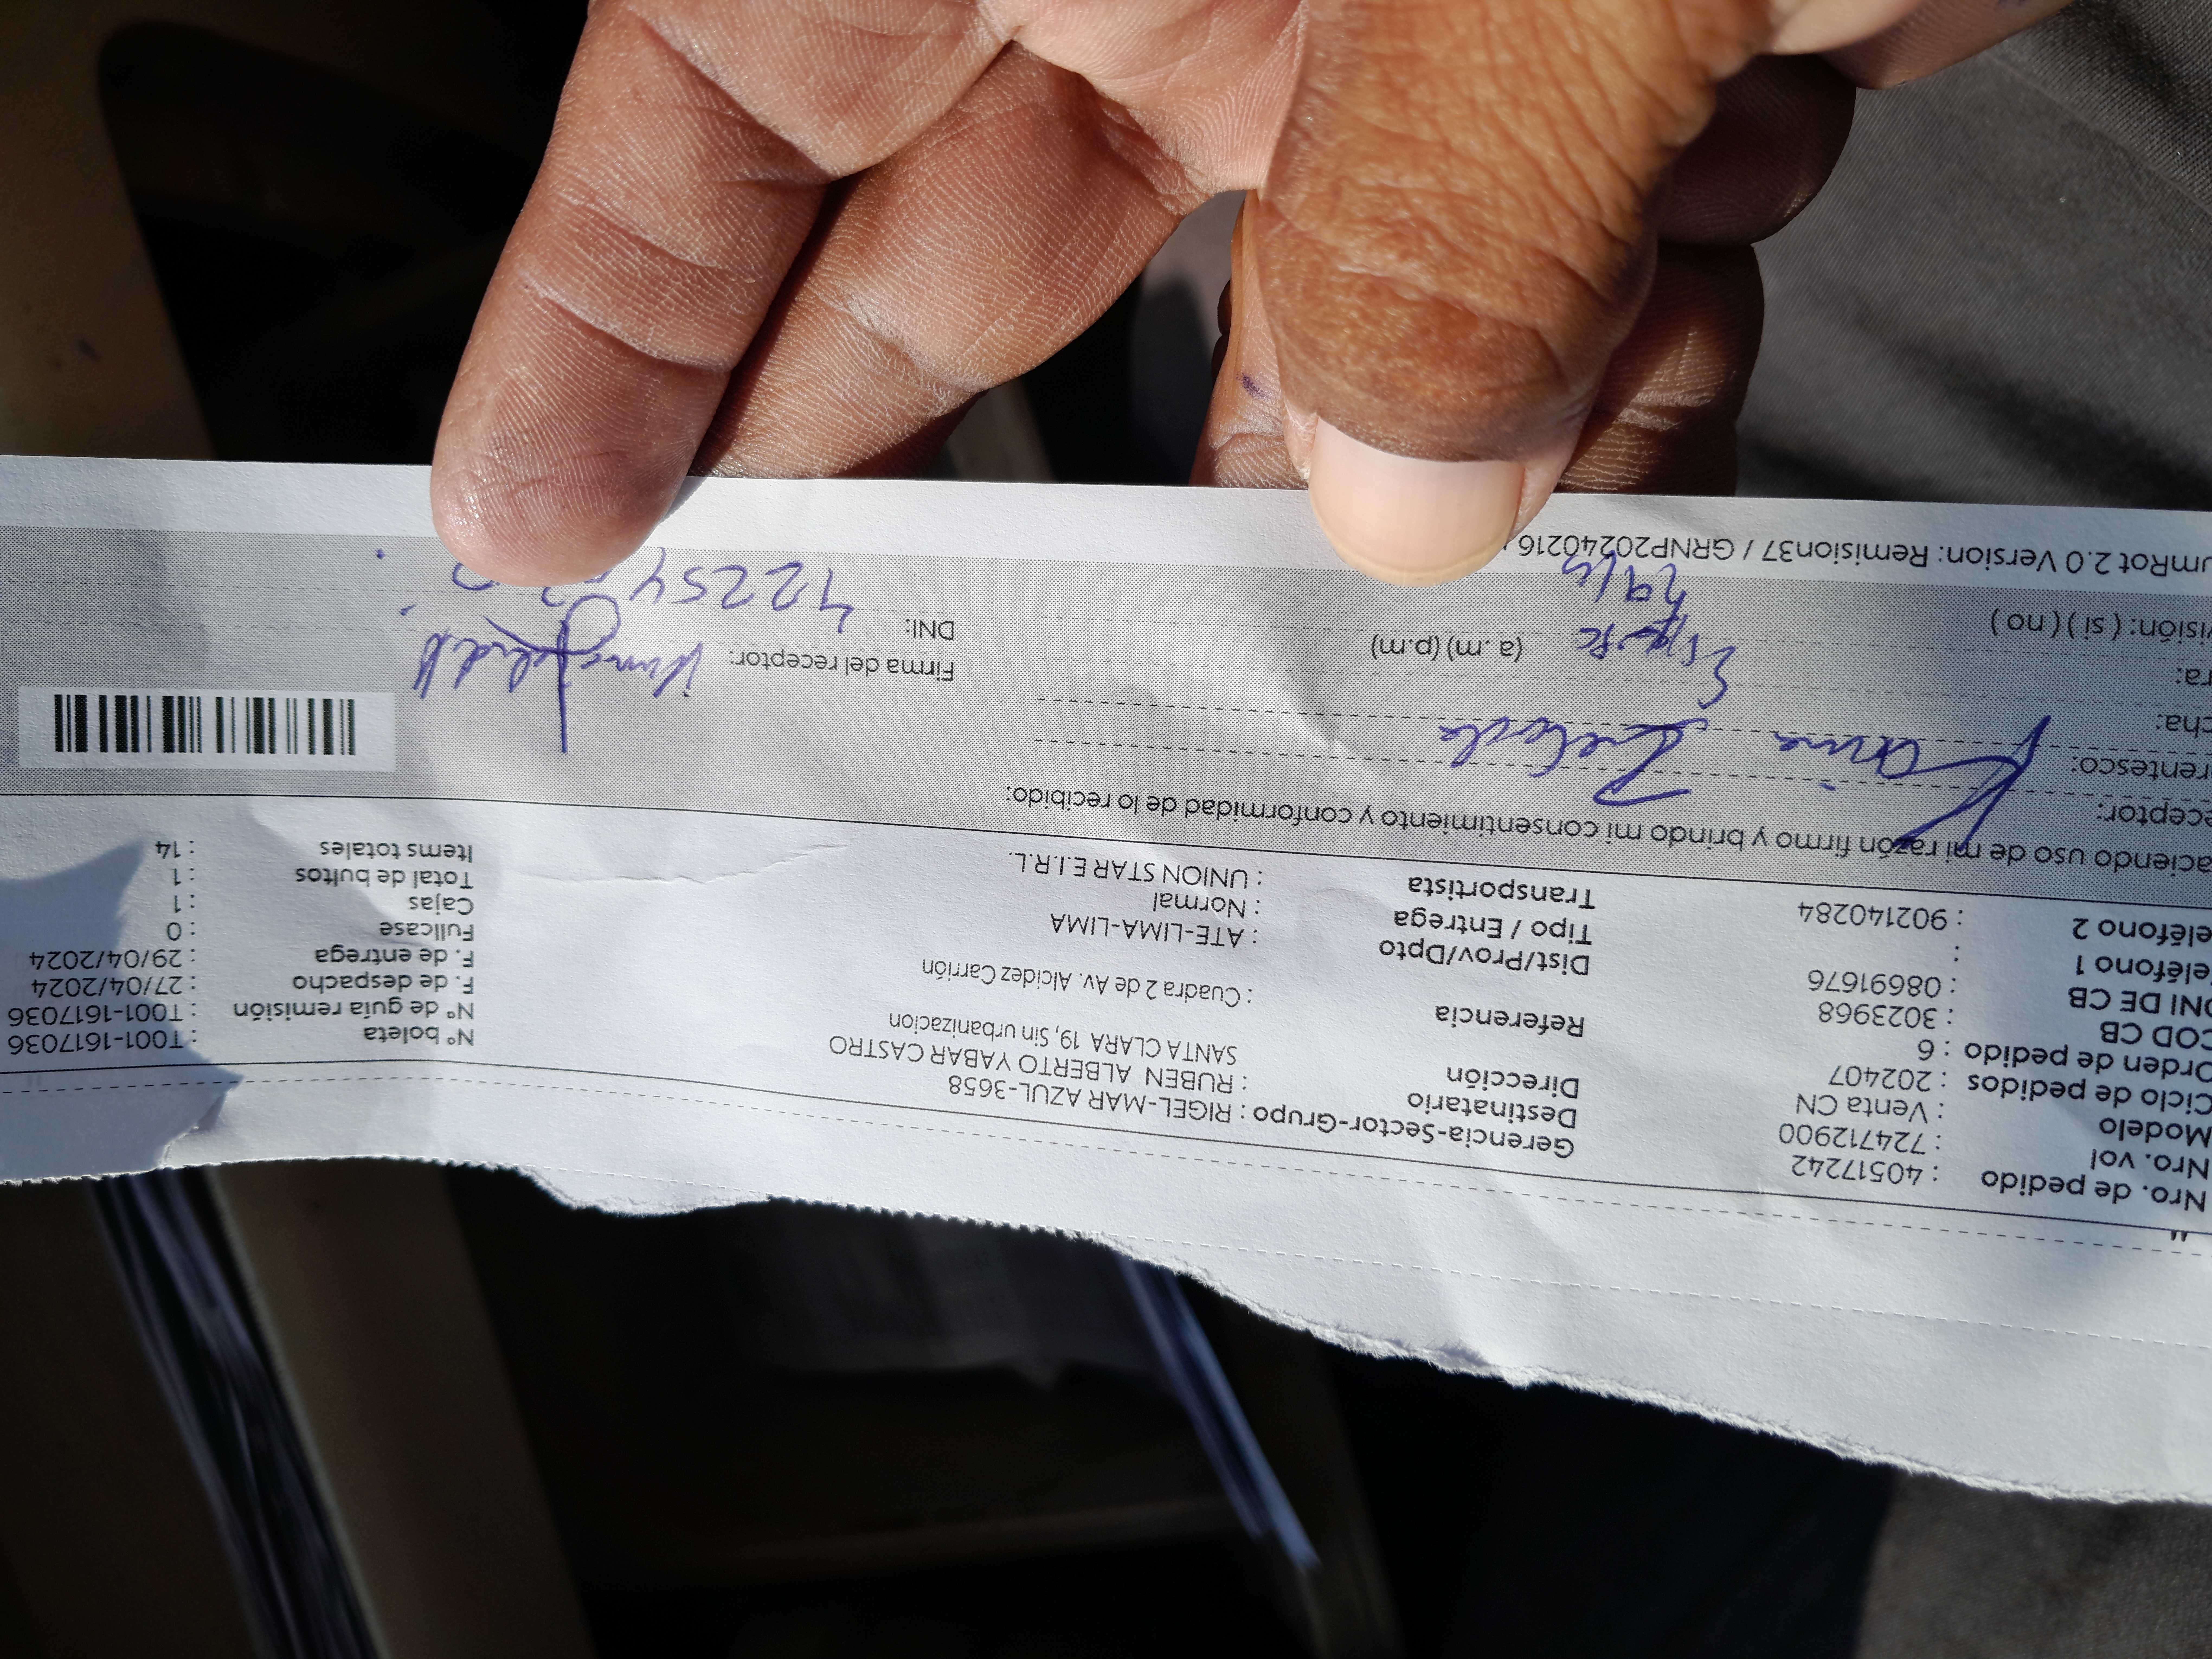 Nro. de pedido : 40517242
Nro. vol : 724712900
Modelo : Venta CN
Ciclo de pedidos : 202407
Orden de pedido : 6
COD CB : 3023968
DNI DE CB : 08691676
eléfono 1 :
eléfono 2 : 902140284
Gerencia-Sector-Grupo : RIGEL-MAR AZUL-3658
Destinatario : RUBEN ALBERTO YABAR CASTRO
Dirección SANTA CLARA 19, Sin urbanizacion
Referencia : Cuadra 2 de Av. Alcidez Carrión
Dist/Prov/Dpto : ATE-LIMA-LIMA
Tipo / Entrega : Normal
Transportista : UNION STAR E.I.R.L.
Nº boleta : T001-1617036
Nº de guía remisión : T001-1617036
F. de despacho : 27/04/2024
F. de entrega : 29/04/2024
Fullcase : 0
Cajas : 1
Total de bultos : 1
Items totales : 14
aciendo uso de mi razón firmo y brindo mi consentimiento y conformidad de lo recibido:
ceptor: Karina
rentesco:
cha:
ra: (a. m) (p.m)
visión: ( si ) ( no )
Firma del receptor:
DNI:
umRot 2.0 Version: Remision37 / GRNP20240216